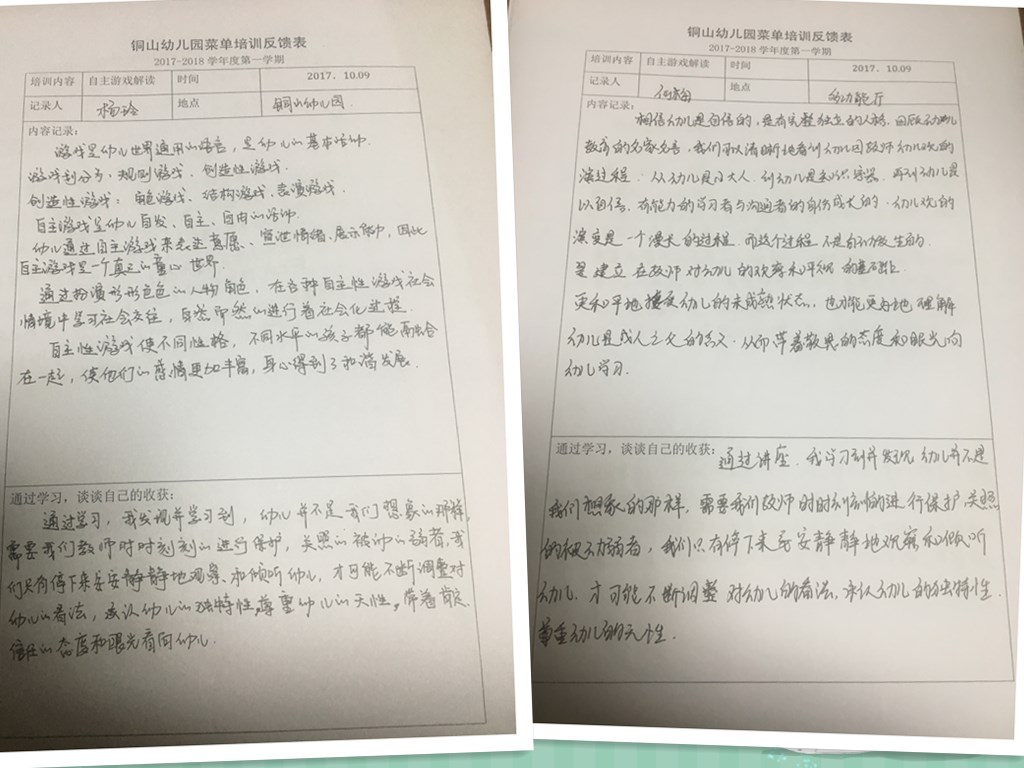 铜山幼儿园菜单培训反馈表
2017-2018 学年度第一学期
培训内容 自主游戏解读 时间 2017. 10.09
记录人 杨玲 地点 铜山幼儿园
内容记录:
游戏是幼儿世界通用的语言，是幼儿的基本活动.
游戏划分为：规则游戏、创造性游戏.
创造性游戏：角色游戏、结构游戏、表演游戏.
自主游戏是幼儿自发、自主、自由的活动
幼儿通过自主游戏来表达意愿、宣泄情绪、展示能力，因此
自主游戏是一个真正的童心世界.
通过扮演形形色色的人物角色，在各种自主性游戏社会
情境中学习社会交往，自然而然的进行着社会化过程.
自主性游戏使不同性格，不同水平的孩子都能融合
在一起，使他们的感情更加丰富，身心得到了和谐发展.
通过学习，谈谈自己的收获:
通过学习，我发现并学习到，幼儿并不是我们想象的那样，
需要我们教师时时刻刻的进行保护，关照的被动的弱者，我
们只有停下来去安静静地观察和倾听幼儿，才可能不断调整对
幼儿的看法，承认幼儿的独特性，尊重幼儿的天性，带着肯定、
信任的态度和眼光看向幼儿.
铜山幼儿园菜单培训反馈表
2017-2018 学年度第一学期
培训内容 自主游戏解读 时间 2017. 10.09
记录人 地点 多功能厅
内容记录:
相信幼儿是自信的，是有完整独立的人格.回顾幼儿
教育的名家名言，我们可以清晰地看到幼儿园教师幼儿观的
演变过程：从幼儿是小大人，到幼儿是知识容器，再到幼儿是
以自信、有能力的学习者与沟通者的身份成长的.幼儿观的
演变是一个漫长的过程.而这个过程不是自动发生的.
是建立在教师对幼儿的观察和评价的基础上.
更和平地接受幼儿的未成熟状态，也才能更好地理解
幼儿是成人之父的含义.从而带着敬畏的态度和眼光向
幼儿学习.
通过学习，谈谈自己的收获:
通过讲座.我学习到并发现幼儿并不是
我们想象的那样，需要我们教师时时刻刻的进行保护关照
的被动弱者，我们只有停下来去安静静地观察和倾听
幼儿.才可能不断调整对幼儿的看法.承认幼儿的独特性.
尊重幼儿的天性.